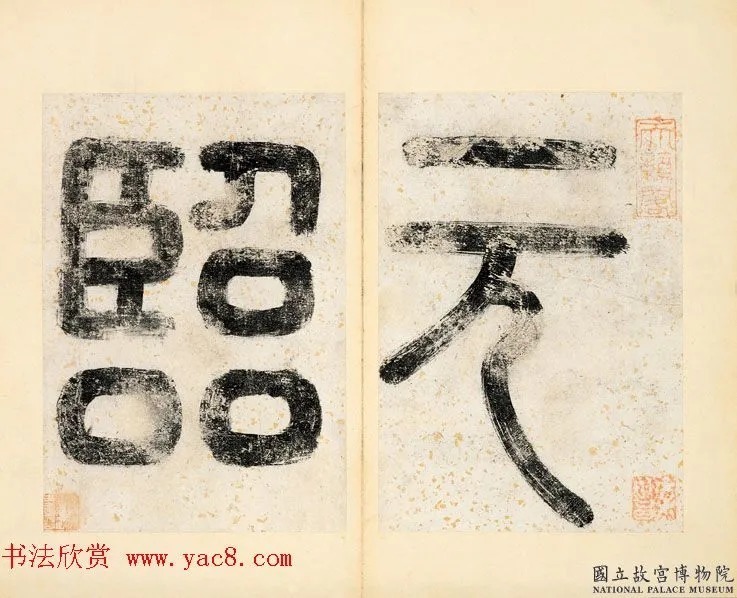 元
臨
书法欣赏 www.yac8.com
國立故宮博物院
NATIONAL PALACE MUSEUM